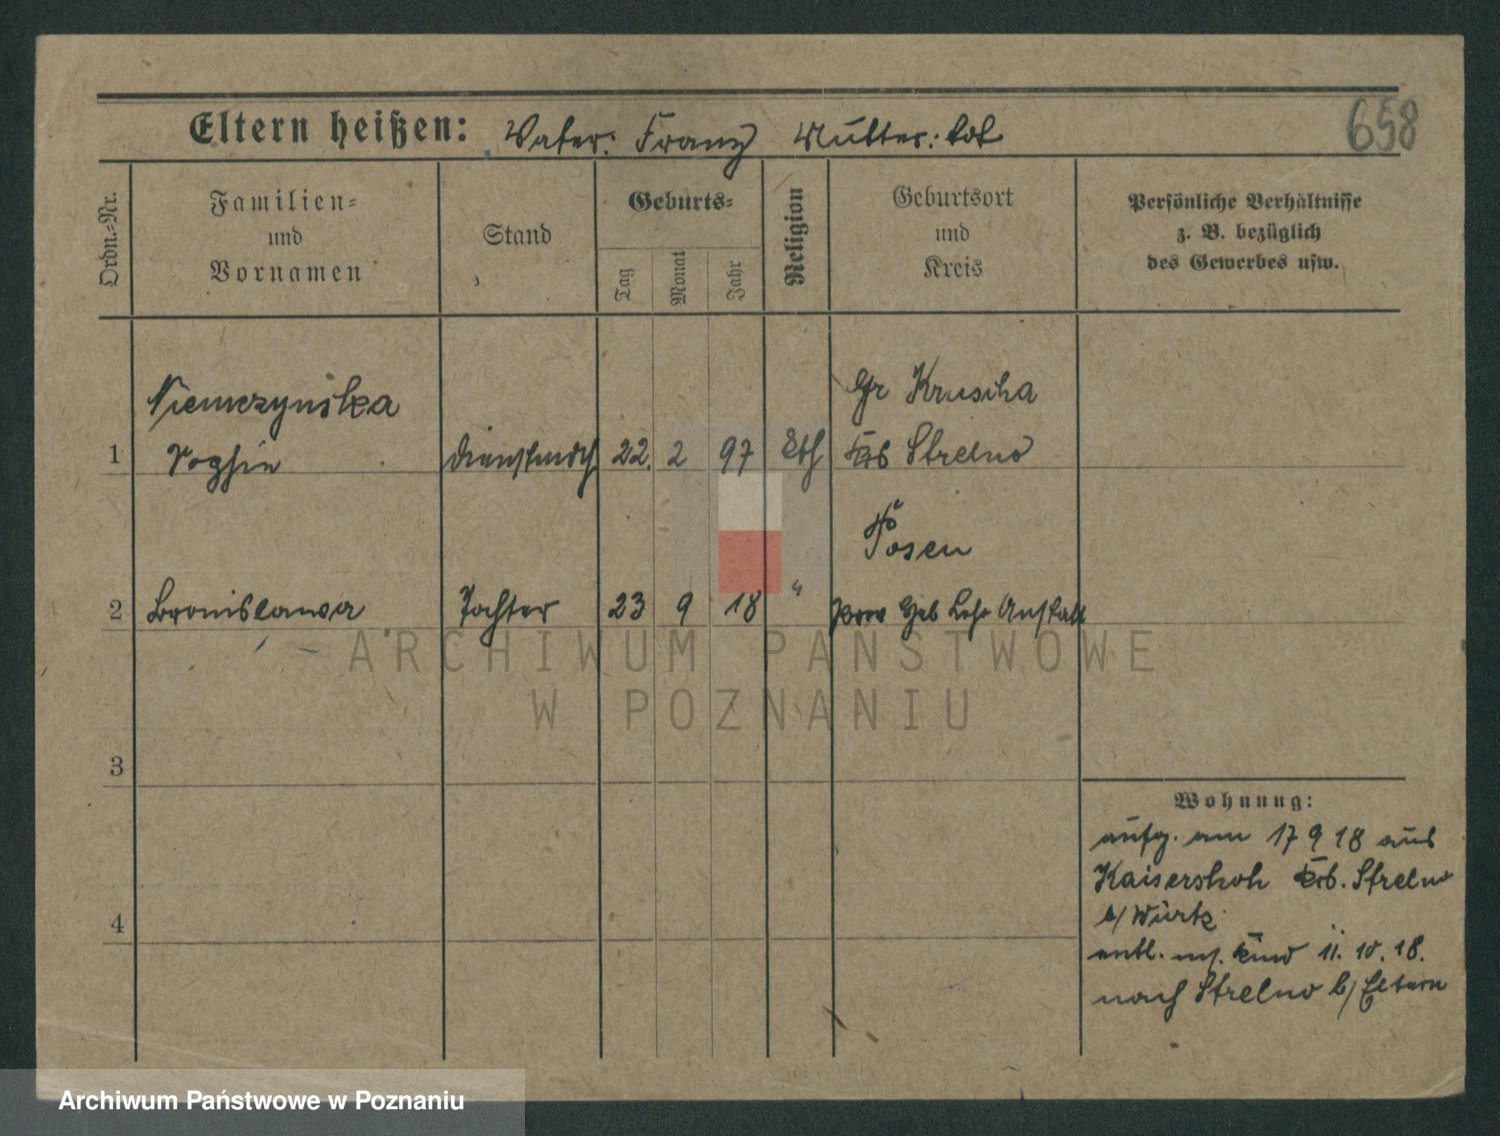 658
Eltern heißen: Vater: Franz Mutter: tot
Ordn.-Nr.
Familien-
und
Vornamen
Stand
Geburts-
Tag
Monat
Jahr
Religion
Geburtsort
und
Kreis
Persönliche Verhältnisse
z. B. bezüglich
des Gewerbes usw.
Niemczynska
Gr Kruscha
1 Sophie Dienstmdch 22. 2 97 kth Krs Strelno
Posen
2 Bronislawa Tochter 23 9 18 " Prov Heb Lehr Anstalt
3
4
Wohnung:
aufg. am 17 9 18 aus
Kaisershoh Krs. Strelno
b/ Würtz
entl. m/. Kind 11. 10. 18.
nach Strelno b/ Eltern
ARCHIWUM PAŃSTWOWE
W POZNANIU
Archiwum Państwowe w Poznaniu